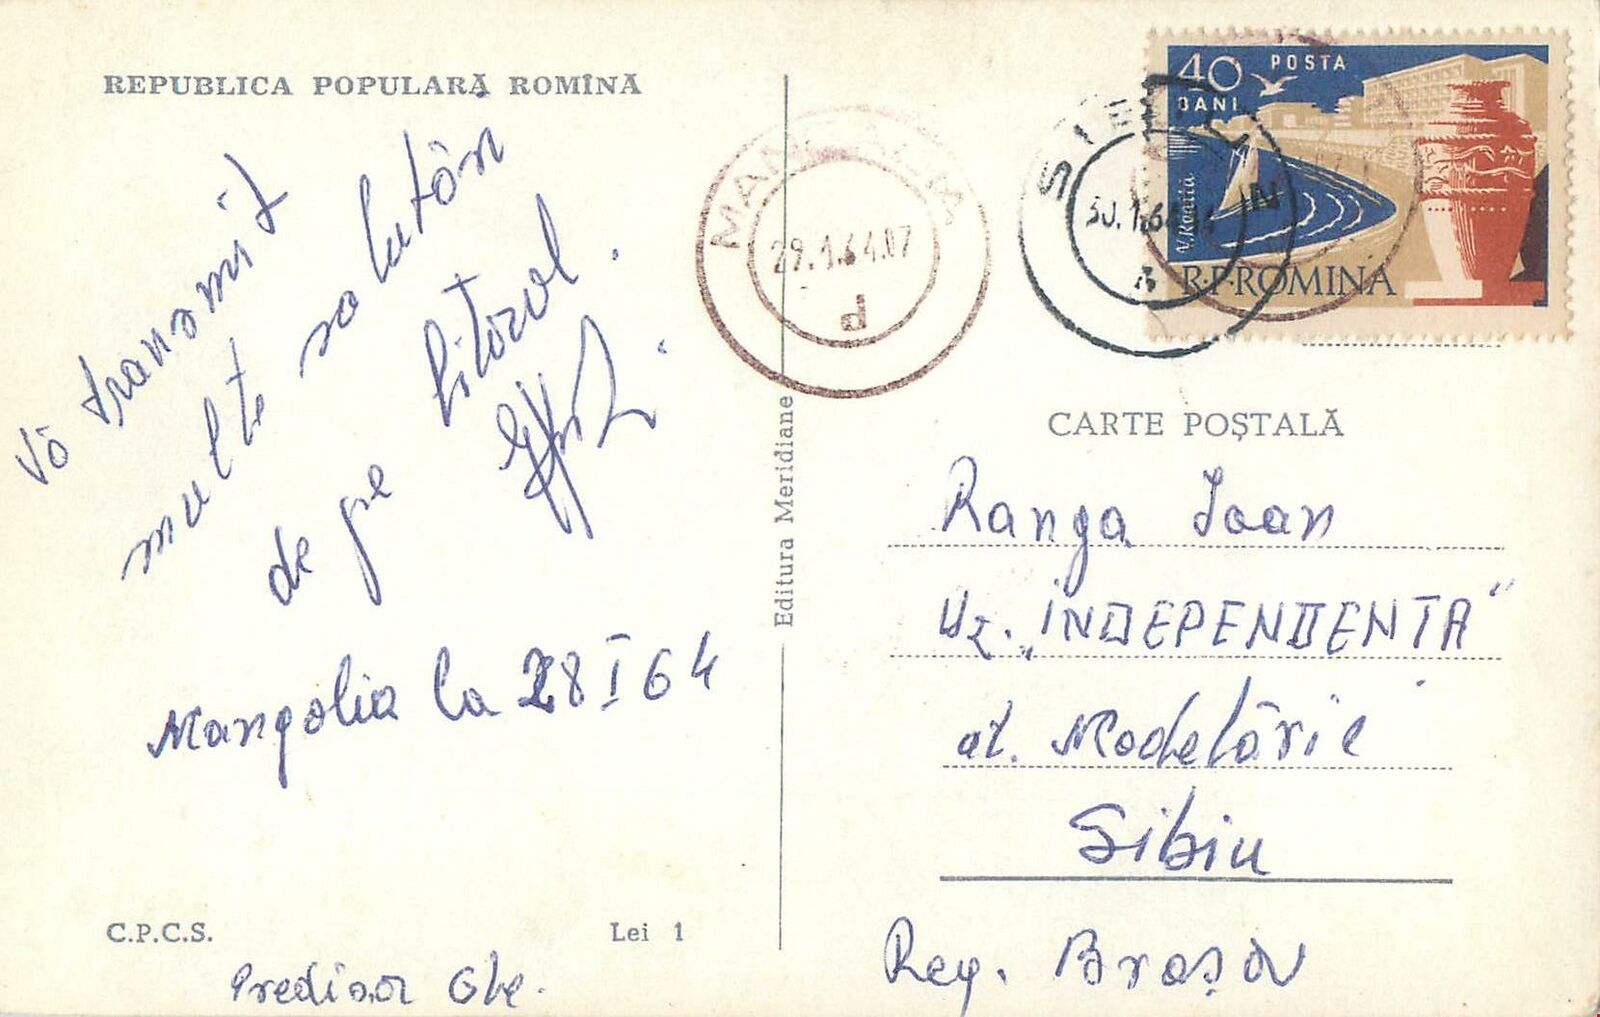 REPUBLICA POPULARĂ ROMÎNĂ
Vă transmit
multe salutări
de pe litoral.
Mangalia la 28 I 64
C.P.C.S.
Lei 1
Predișor Ghe.
Editura Meridiane
MANGALIA
29.1.64.07
d
SIBIU
30.1.64
40
BANI
POSTA
V. Roaită
R.P. ROMINA
CARTE POȘTALĂ
Ranga Ioan
Uz. „INDEPENDENTA"
at. Modelărie
Sibiu
Reg. Brașov